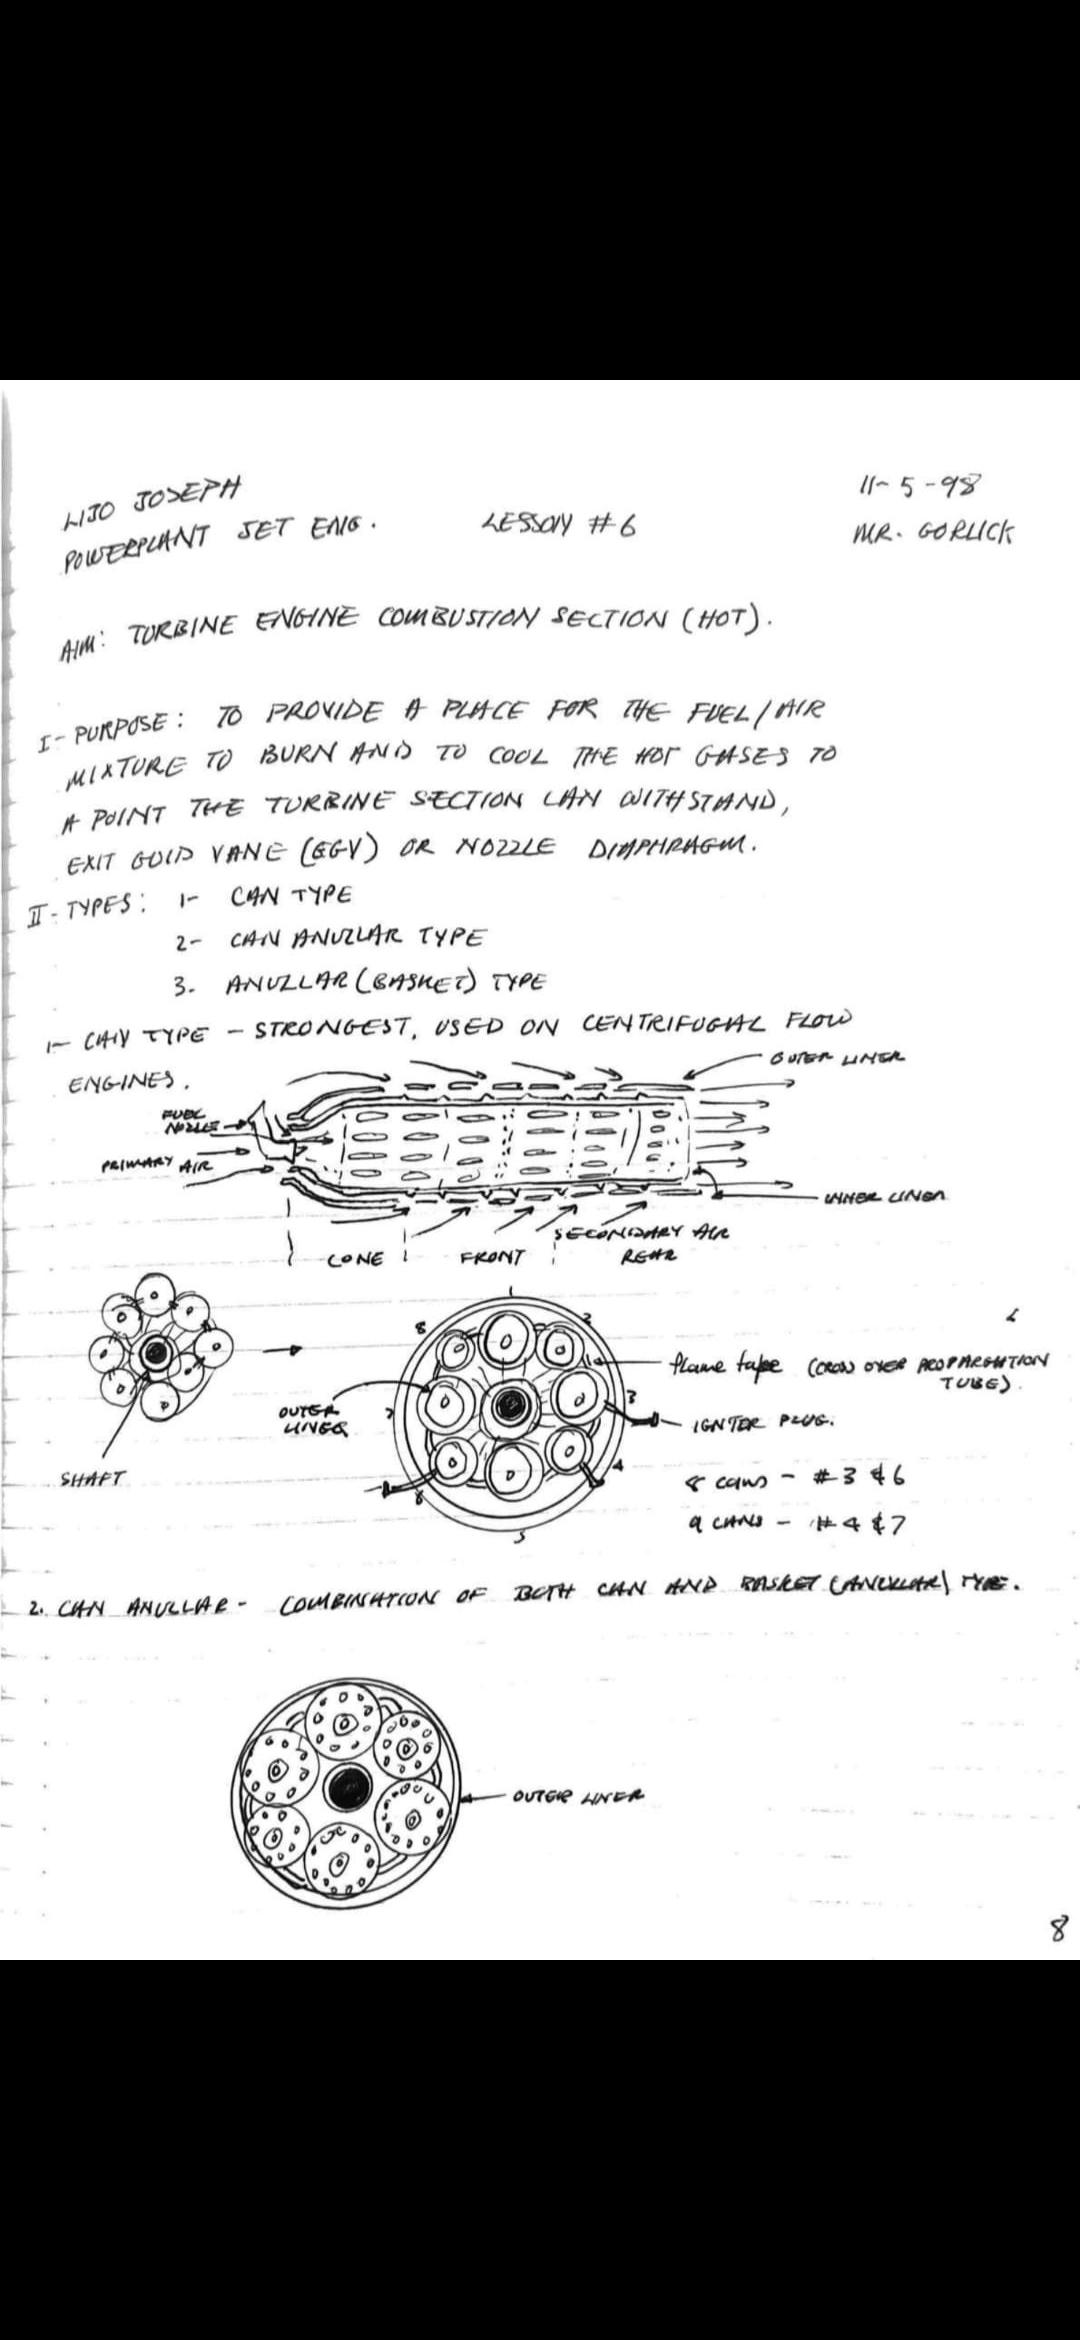 LIJO JOSEPH
11-5-98
POWERPLANT JET ENG.
LESSON #6
MR. GORLICK
AIM: TURBINE ENGINE COMBUSTION SECTION (HOT).
I- PURPOSE: TO PROVIDE A PLACE FOR THE FUEL/AIR
MIXTURE TO BURN AND TO COOL THE HOT GASES TO
A POINT THE TURBINE SECTION CAN WITHSTAND,
EXIT GUID VANE (EGV) OR NOZZLE DIAPHRAGM.
II- TYPES: 1- CAN TYPE
2- CAN ANULLAR TYPE
3. ANULLAR (BASKET) TYPE
1- CAN TYPE - STRONGEST, USED ON CENTRIFUGAL FLOW
ENGINES.
OUTER LINER
FUEL
NOZZLE
PRIMARY AIR
INNER LINER
SECONDARY AIR
CONE
FRONT
REAR
1
2
8
flame tape (CROSS OVER PROPARGATION
TUBE)
3
OUTER
LINER
7
IGNTER PLUG.
4
SHAFT
8 CANS - #3 & 6
6
9 CANS - #4 & 7
5
2. CAN ANULLAR - COMBINATION OF BOTH CAN AND BASKET (ANULLAR) TYPE.
OUTER LINER
8